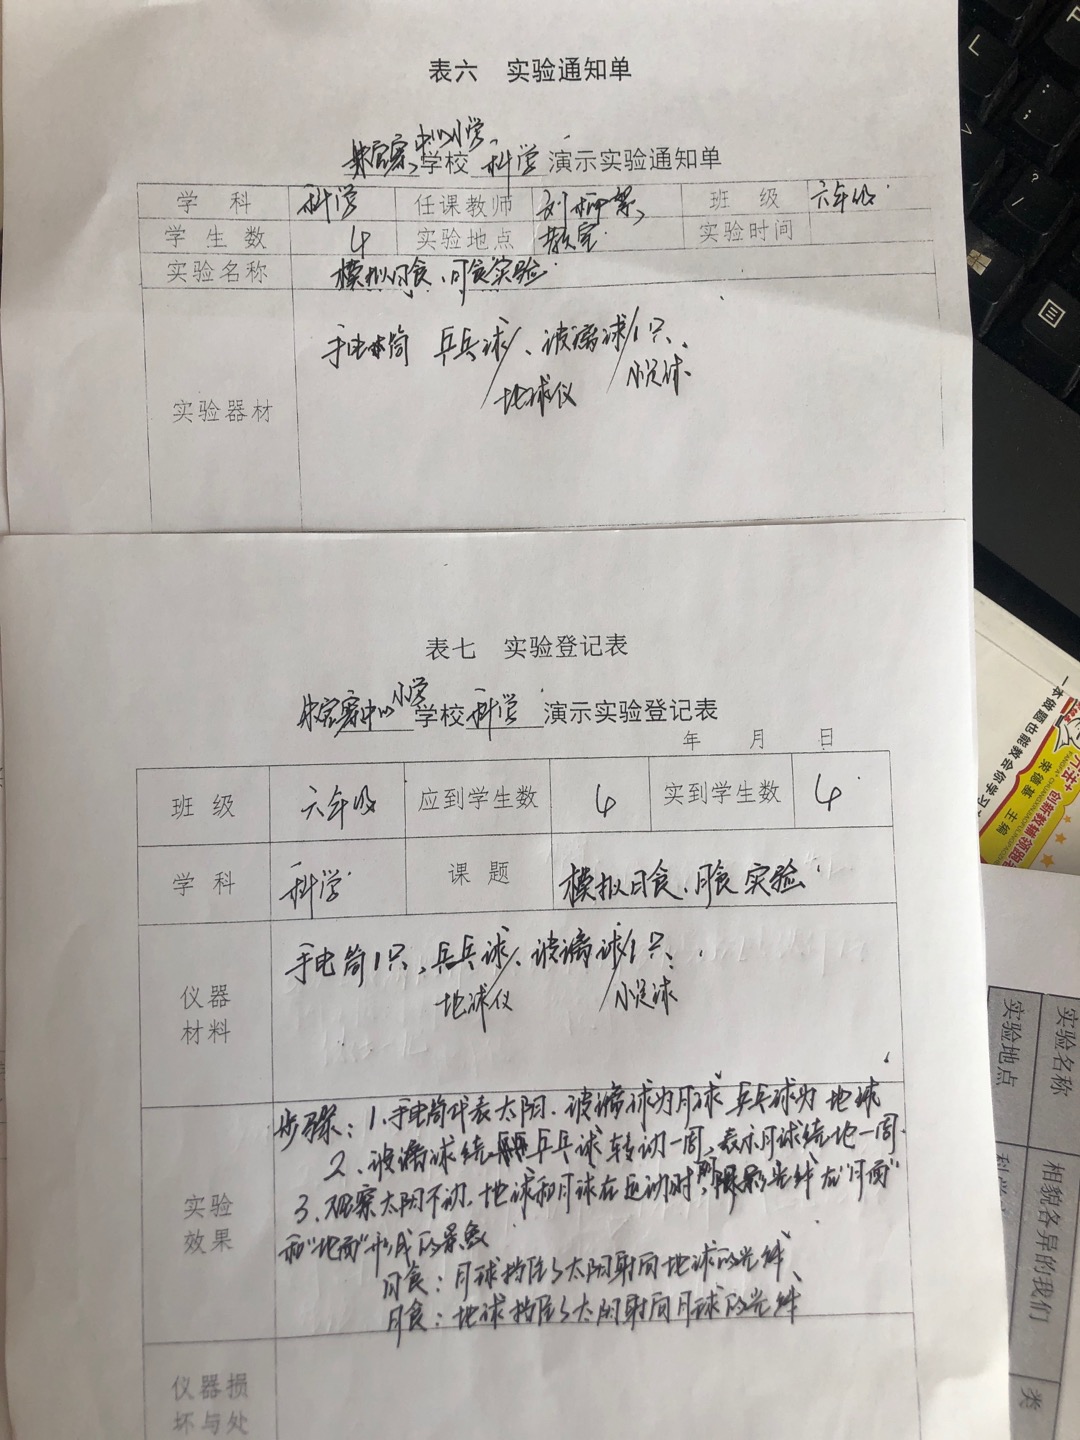 表六 实验通知单
中心小学
学校 科学 演示实验通知单
学科 科学 任课教师 班级 六年级
学生数 4 实验地点 教室 实验时间
实验名称 模拟日食、月食实验
实验器材
手电筒 乒乓球/、玻璃球/1只、
地球仪 小足球
表七 实验登记表
中心小学
学校 科学 演示实验登记表
年 月 日
班级 六年级 应到学生数 4 实到学生数 4
学科 科学 课题 模拟日食、月食实验
仪器材料
手电筒1只、乒乓球/、玻璃球/1只、
地球仪 小足球
实验效果
步骤：1、手电筒代表太阳、玻璃球为月球、乒乓球为地球
2、玻璃球绕乒乓球转动一周，表示月球绕地一周.
3、观察太阳不动、地球和月球在运动时，光线在“月面”
和“地面”形成的景象
日食：月球挡住了太阳射向地球的光线
月食：地球挡住了太阳射向月球的光线
仪器损
坏与处
一本做题也能教会你学习
荣德基 主编
创新教辅领跑
实验名称 相貌各异的我们
实验地点 科学
类